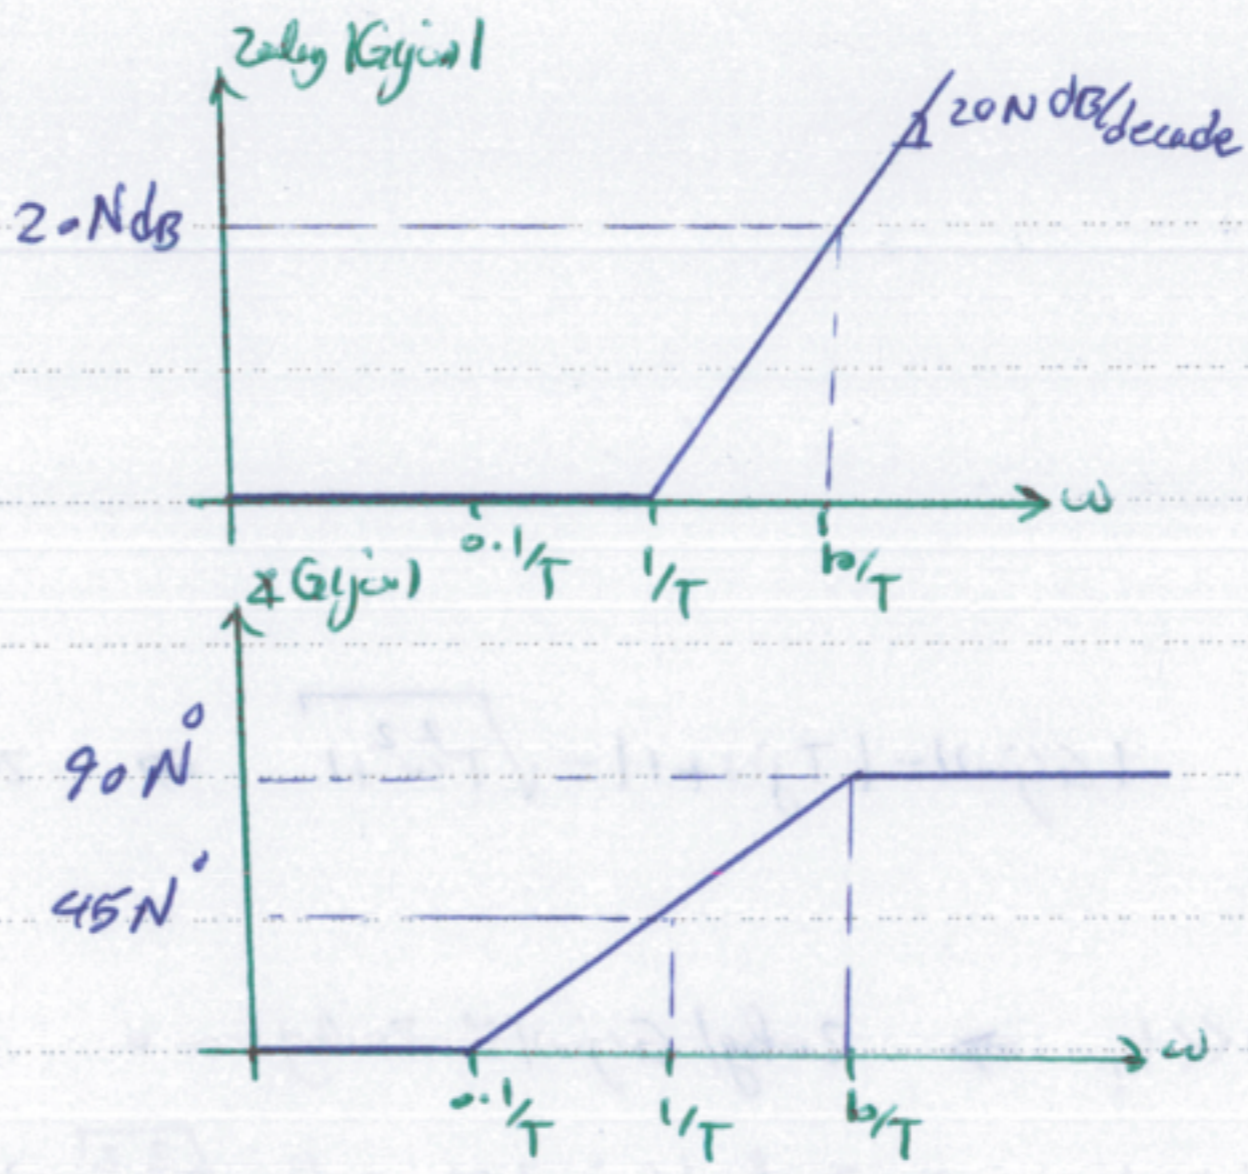 20log |G(jω)|
20N dB/decade
20N dB
ω
0.1/T
1/T
10/T
∡G(jω)
90N°
45N°
ω
0.1/T
1/T
10/T